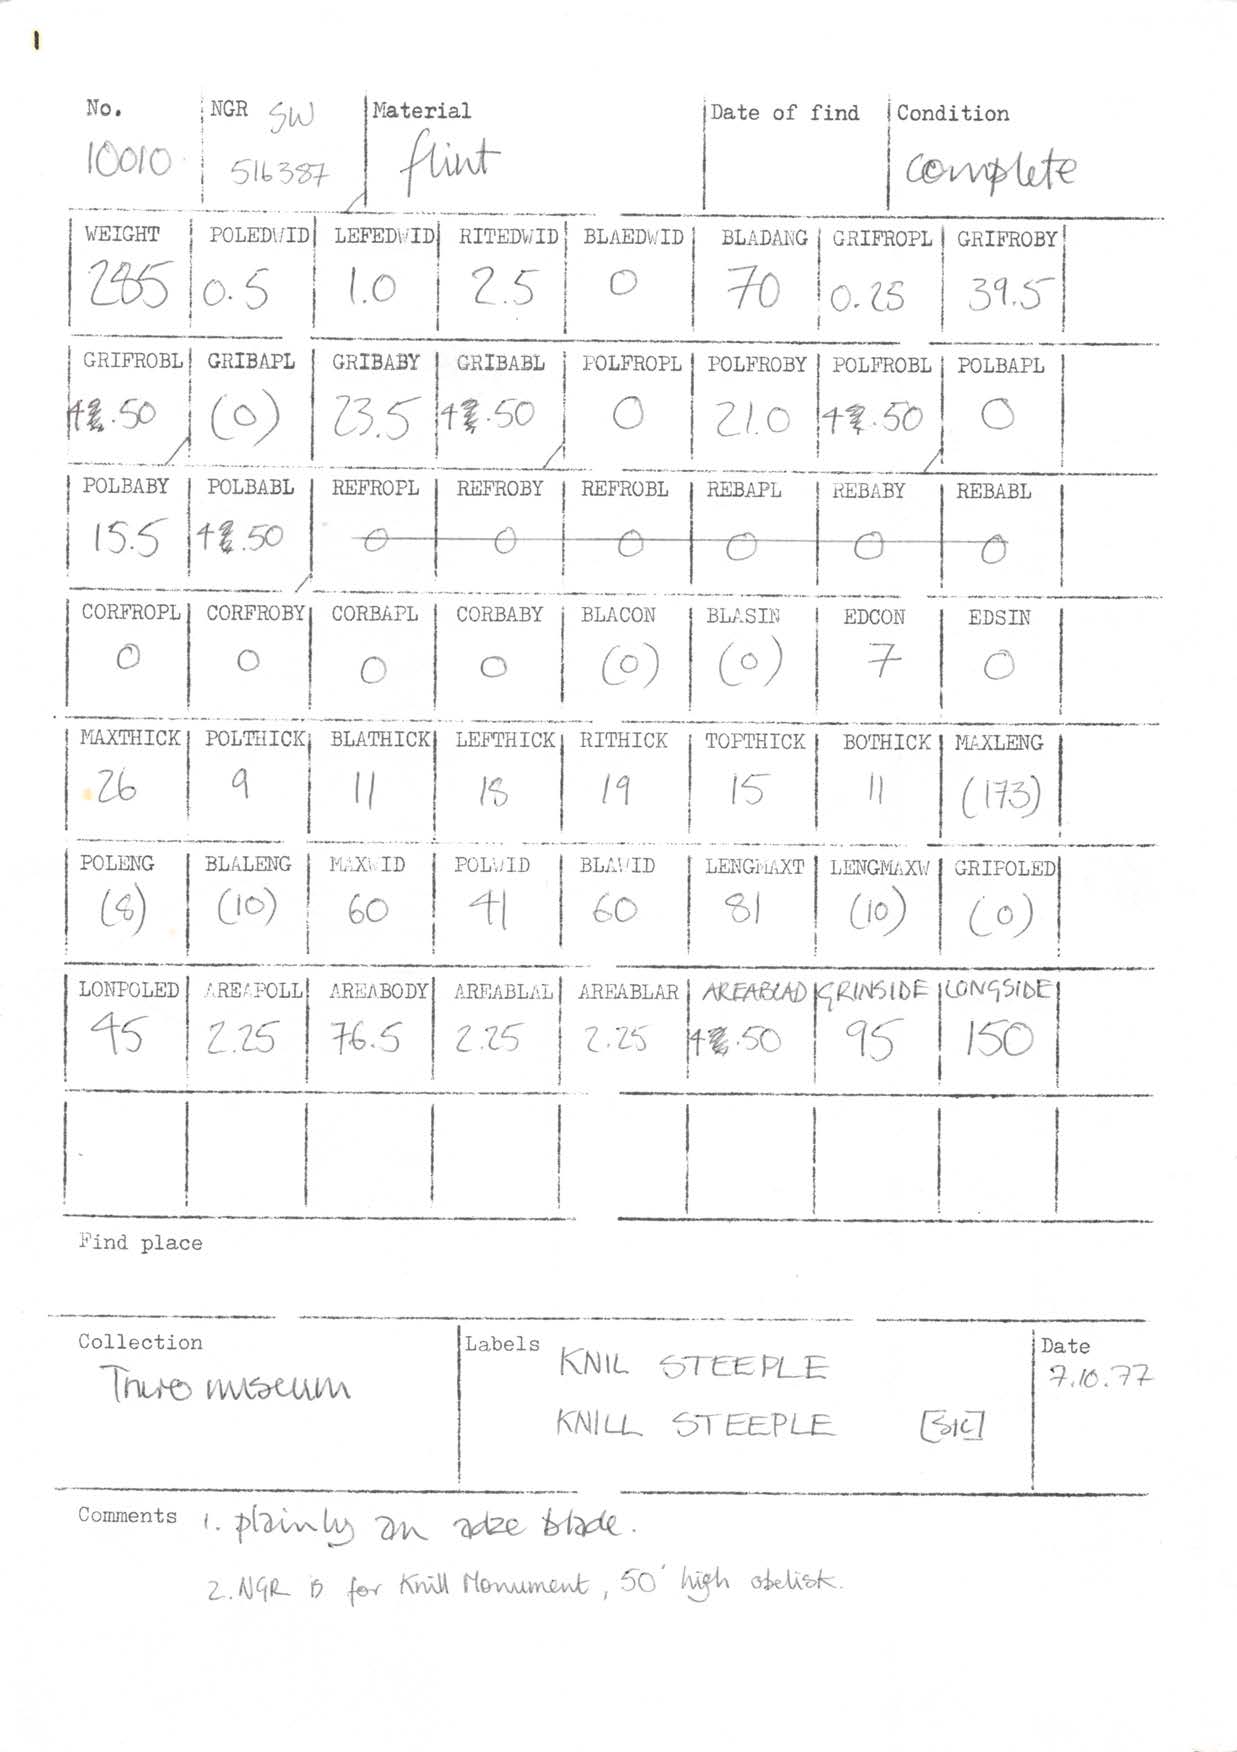 1
No. NGR SW Material Date of find Condition
10010 516387 flint complete
WEIGHT POLEDWID LEFEDWID RITEDWID BLAEDWID BLADANG GRIFROPL GRIFROBY
285 0.5 1.0 2.5 0 70 0.25 39.5
GRIFROBL GRIBAPL GRIBABY GRIBABL POLFROPL POLFROBY POLFROBL POLBAPL
4.50 (0) 23.5 4.50 0 21.0 4.50 0
POLBABY POLBABL REFROPL REFROBY REFROBL REBAPL REBABY REBABL
15.5 4.50 0 0 0 0 0 0
CORFROPL CORFROBY CORBAPL CORBABY BLACON BLASIN EDCON EDSIN
0 0 0 0 (0) (0) 7 0
MAXTHICK POLTHICK BLATHICK LEFTHICK RITHICK TOPTHICK BOTHICK MAXLENG
26 9 11 18 19 15 11 (173)
POLENG BLALENG MAXWID POLWID BLAWID LENGMAXT LENGMAXW GRIPOLED
(8) (10) 60 41 60 81 (10) (0)
LONPOLED AREAPOLL AREABODY AREABLAL AREABLAR AREABLAD GRINSIDE LONGSIDE
45 2.25 76.5 2.25 2.25 4.50 95 150
Find place
Collection Labels KNIL STEEPLE Date
Truro museum 7.10.77
KNILL STEEPLE [SIC]
Comments 1. plainly an adze blade.
2. NGR is for Knill Monument, 50' high obelisk.